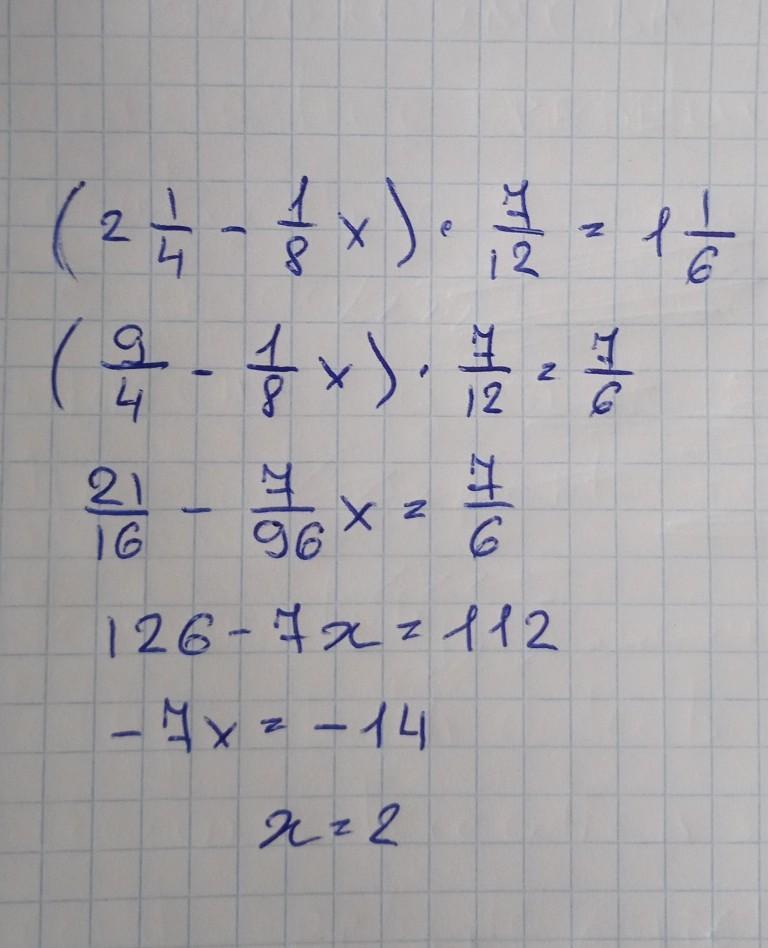 (2 1/4 - 1/8 x) · 7/12 = 1 1/6
(9/4 - 1/8 x) · 7/12 = 7/6
21/16 - 7/96 x = 7/6
126 - 7x = 112
-7x = -14
x = 2